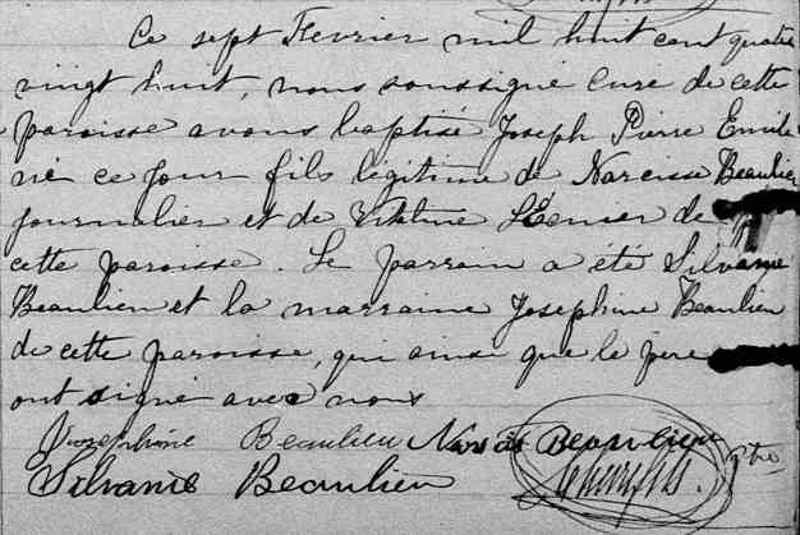 Ce sept Fevrier mil huit cent quatre
vingt huit, nous soussigné curé de cette
paroisse avons baptisé Joseph Pierre Emile
né ce jour fils légitime de Narcisse Beaulieu
journalier et de de
cette paroisse. Le parrain a été Silvanie
Beaulieu et la marraine Josephine Beaulieu
de cette paroisse, qui ainsi que le père
ont signé avec nous
Josephine Beaulieu Narcis Beaulieu
Silvanie Beaulieu ptre